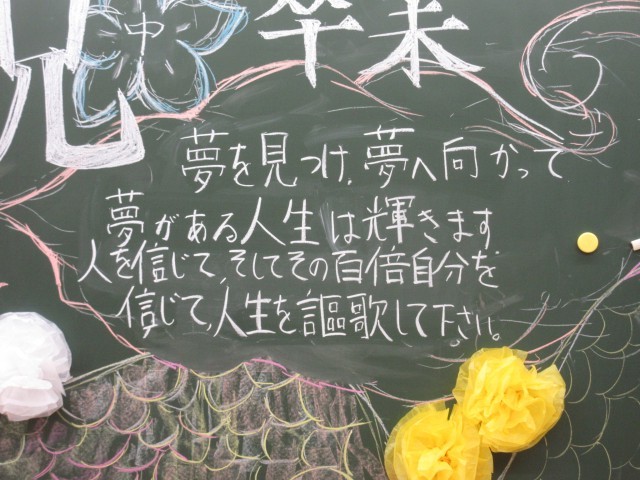 祝 中 卒業
夢を見つけ、夢へ向かって
夢がある人生は輝きます
人を信じて、そしてその百倍自分を
信じて、人生を謳歌して下さい。